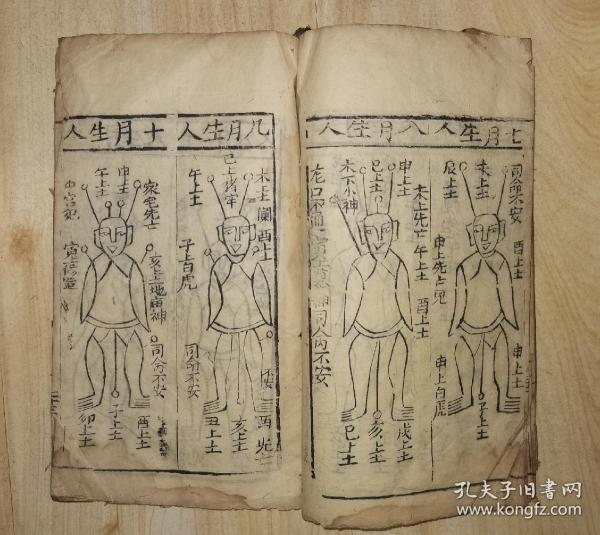 七月生人
司命不安
酉上土
申上土
未上土
辰上土
申上白虎
子上土
八月生人
未上先亡
午上土
酉上土
申上土
巳上土
木下小神
戌上土
亥上土
巳上土
九月生人
未上土
酉上土
午上土
子上白虎
司命不安
不安
亥上土
丑上土
十月生人
家宅先亡
亥上地庙神
司命不安
申上土
午上土
酉上土
子上土
卯上土
孔夫子旧书网
www.kongfz.com